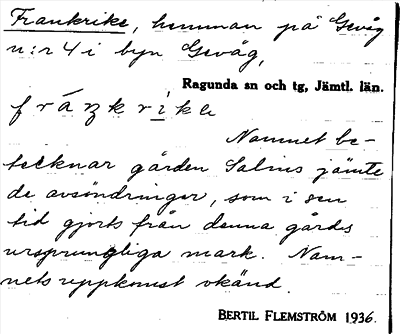 Frankrike, hemman på Gevåg
n:r 4 i byn Gevåg,
Ragunda sn och tg, Jämtl. län.
Namnet be-
tecknar gården Salins jämte
de avsöndringar, som i sen
tid gjorts från denna gårds
ursprungliga mark. Nam-
nets uppkomst okänd.
BERTIL FLEMSTRÖM 1936.